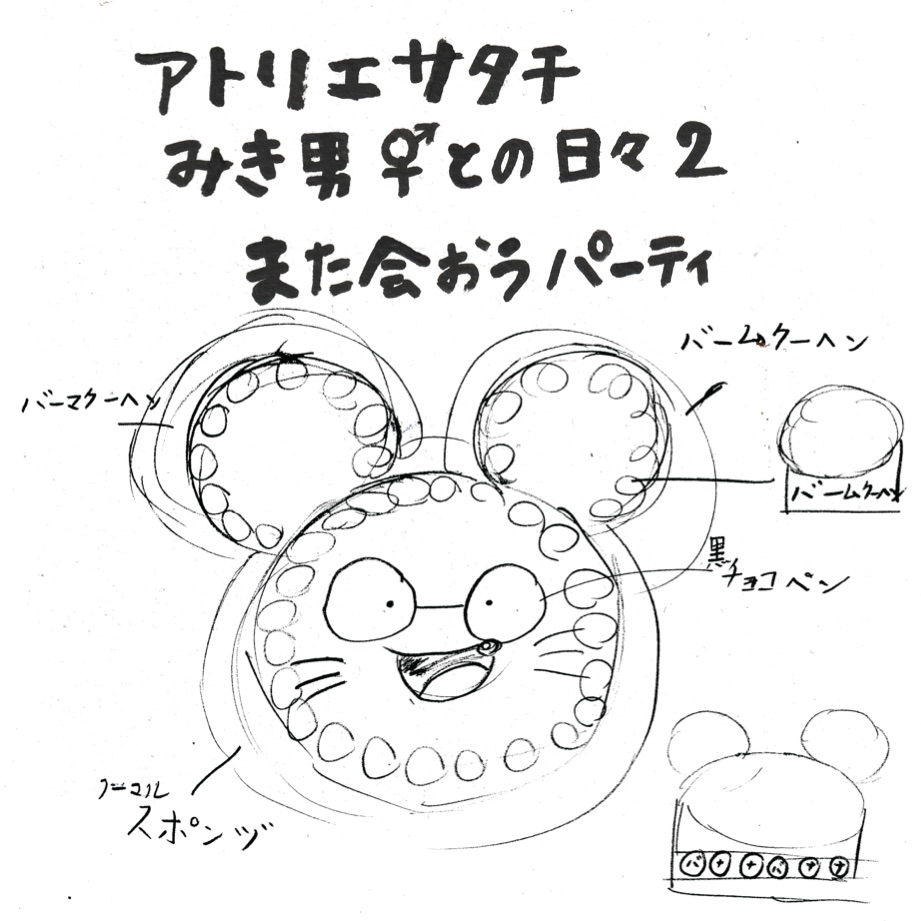 アトリエサタチ
みき男⚥との日々2
また会おうパーティ
バームクーヘン
バーマクーヘン
バームクーヘン
黒チョコペン
ノーマル
スポンヅ
バナナバナナ